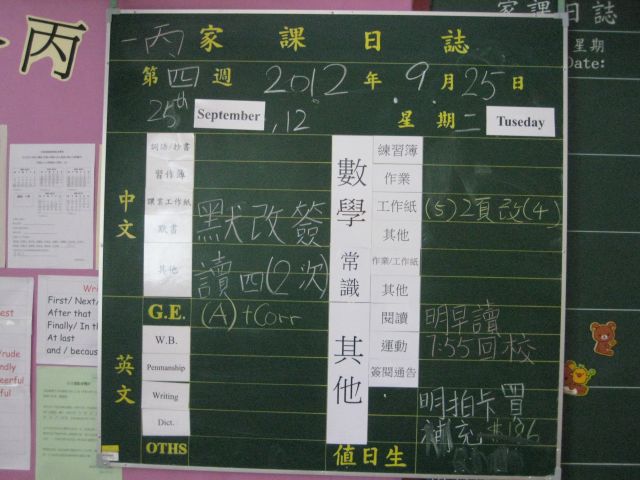 一丙 家課日誌
第四週 2012年9月25日
25th September, 12
星期二 Tuseday
中文
詞語/抄書
習作簿
課業工作紙
默書 默改簽
其他 讀四(2次)
英文
G.E. (A)+Corr
W.B.
Penmanship
Writing
Dict.
OTHS
數學
練習簿
作業
工作紙 (5)2頁改(4)
其他
常識
作業/工作紙
其他
其他
閱讀 明早讀
運動 7:55回校
簽閱通告
明拍卡買
補充
值日生
丙
家課日誌
星期
Date:
Wri
First/ Next/
After that
Finally/ In th
At last
and / because